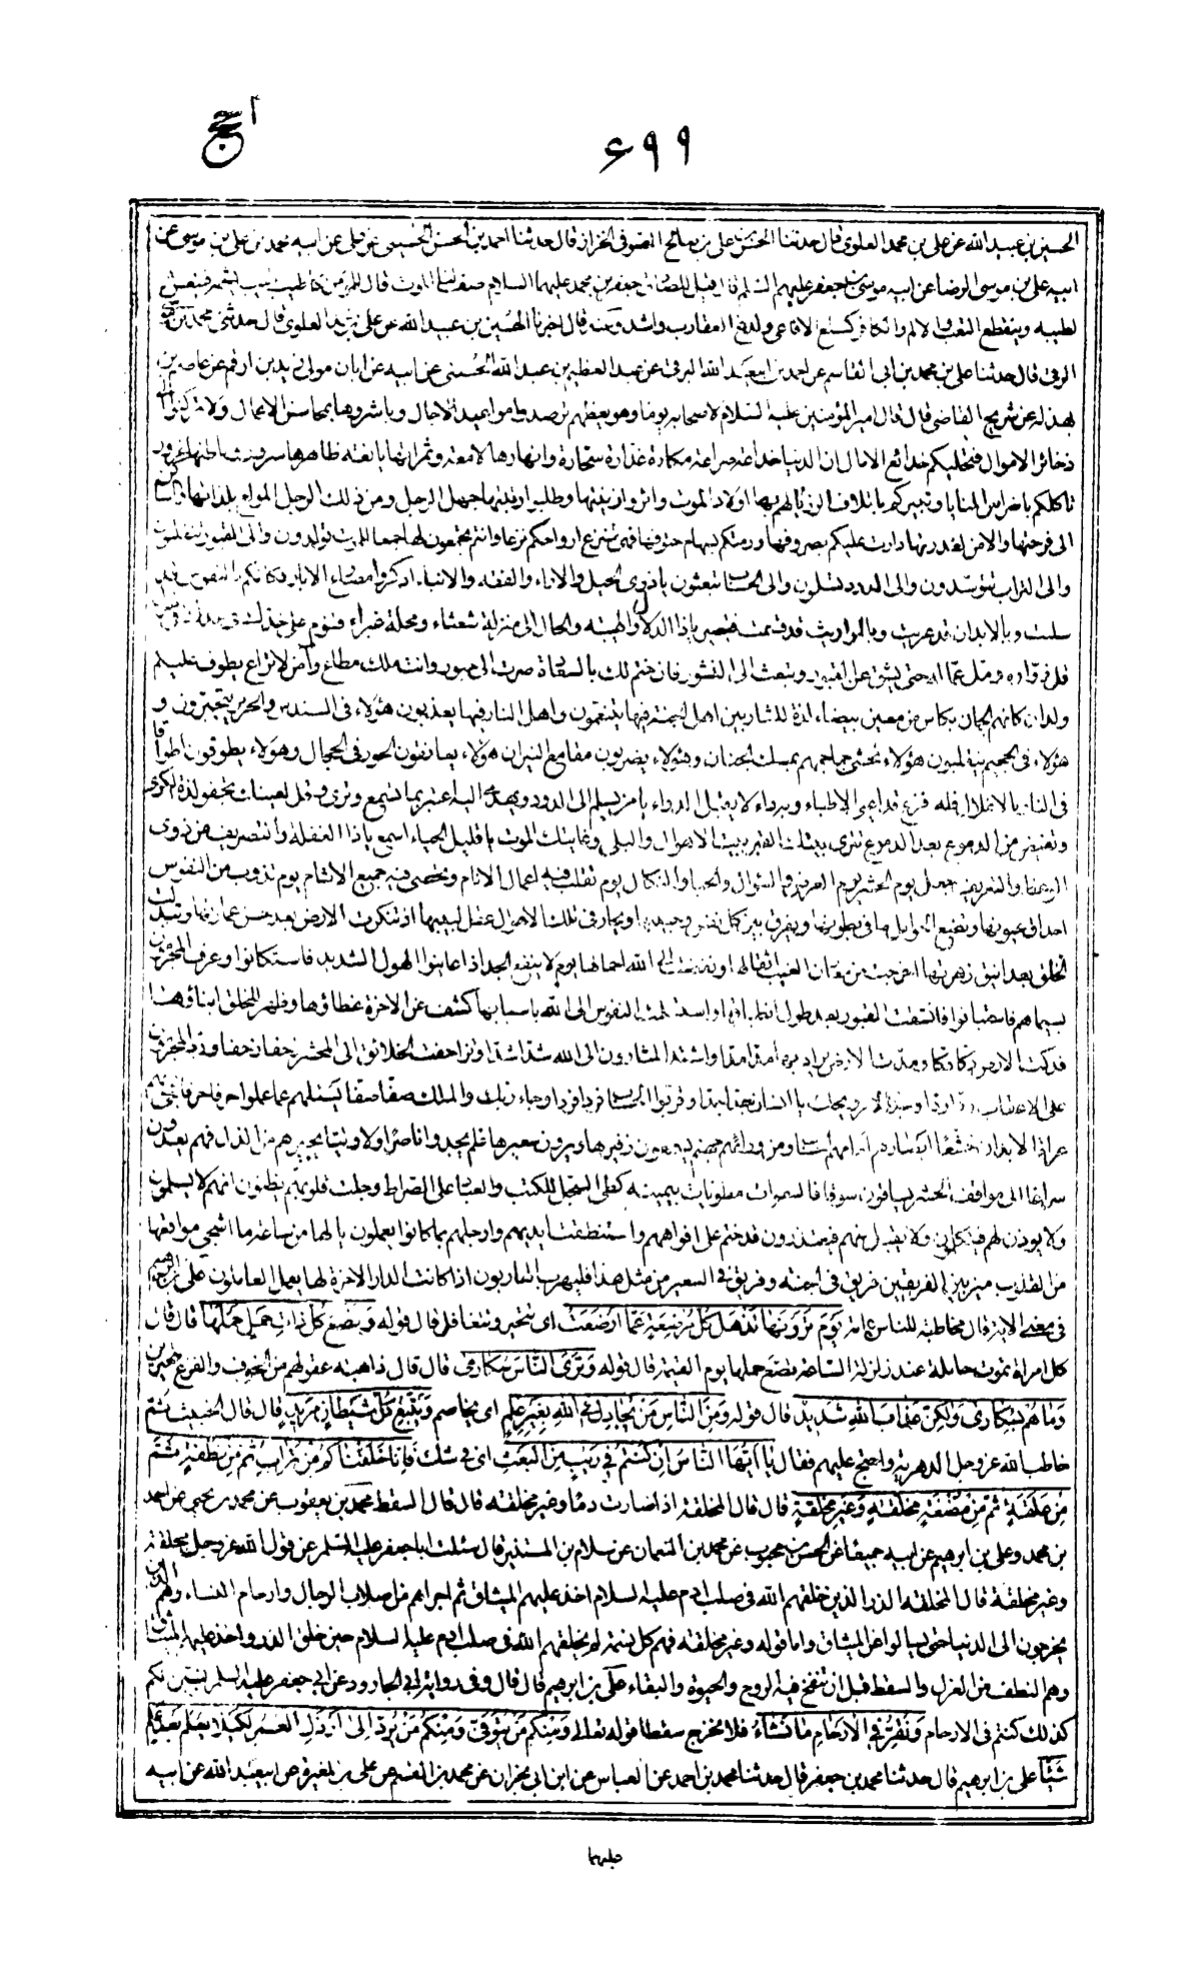 الحج
٦٩٩
الحسين بن عبيد الله عن علي بن محمد العلوى قال حدثنا الحسن بن علي بن صالح الصوفى الخزاز قال حدثنا احمد بن الحسن الحسينى عن ابيه محمد بن علي بن موسى عن
ابيه علي بن موسى الرضا عن ابيه موسى بن جعفر عليهم السلم قال قيل للصادق جعفر بن محمد عليهما السلام صف لنا الموت قال للمؤمن كاطيب ريح يشمه فينعس
لطيبه وينقطع التعب والالم وللكافر كلسع الافاعى ولدغ العقارب واشد وعنه قال اخبرنا الحسين بن عبيد الله عن علي بن محمد العلوى قال حدثنى محمد بن
الرقى قال حدثنا علي بن محمد بن ابى القاسم عن احمد بن ابيعبد الله البرقى عن عبد العظيم بن عبد الله الحسنى عن ابيه عن ابان مولى زيد بن ارقم عن عاصم بن
بهدلة عن شريح القاضى قال قال امير المؤمنين عليه السلام لاصحابه يوما وهو يعظهم ترصدوا مواعيد الاجال وباشروها بمحاسن الاعمال ولا تركنوا الى
ذخائر الاموال فتخليكم خدائع الامال ان الدنيا خداعة صراعة مكارة غدارة سحارة وانهارها لامعة وثمراتها يانعة ظاهرها سرور وباطنها غرور
تاكلكم باضراس المنايا وتبيركم باتلاف الرزايا لهم بها اولاد الموت واثروا زينتها وطلبوا رتبتها جهل الرجل ومن ذلك الرجل المولع بلذاتها والساكن
الى فرحتها والامن لغدرتها دارت عليكم بصروفها ورمتكم بسهام حتوفها فهى تنزع ارواحكم نزعا وانتم تجمعون لها جمعا للموت تولدون والى القبور تنقلون
والى التراب تتوسدون والى الدود تسلمون والى الحساب تبعثون يا ذوى الحيل والاراء والفقه والانباء اذكروا مصارع الاباء فكانكم بالنفوس قد
سلبت وبالابدان قد عريت وبالمواريث قد قسمت فتصير يا ذا الدلال والهيئة والجمال الى منزلة شعثاء ومحلة غبراء فتنوم على خدك فى لحدك فى منزل
قل زواره ومل عماله حتى يشق عن القبور وتبعث الى النشور فان ختم لك بالسعادة صرت الى حبور وانت ملك مطاع وامن لا تراع يطوف عليكم
ولدان كانهم الجمان بكاس من معين بيضاء لذة للشاربين اهل الجنة فيها يتنعمون واهل النار فيها يعذبون هؤلاء فى السندس والحرير يتبخترون و
هؤلاء فى الجحيم والسعير يتقلبون هؤلاء تحشى جماجمهم بمسك الجنان وهؤلاء يضربون بمقامع النيران هؤلاء يعانقون الحور فى الحجال وهؤلاء يطوقون اطواقا
فى النار بالاغلال فى قلبه فزع قد اعيى الاطباء وبه داء لا يقبل الدواء يا من يسلم الى الدود ويهدى اليه اعتبر بما تسمع وترى وقل لعينيك تجفو لذة الكرى
وتفيض من الدموع بعد الدموع تترى بيتك القبر بيت الاهوال والبلى وغايتك الموت يا قليل الحياء اسمع يا ذا الغفلة والتصريف من ذوى
الوعظ والتعريف جعل يوم الحشر يوم العرض والسؤال والحباء والنكال يوم تقلب فيه اعمال الانام وتحصى فيه جميع الاثام يوم تذوب من النفوس
احداق عيونها وتضع الحوامل ما فى بطونها ويفرق بين كل نفس وحبيبها ويحار فى تلك الاهوال عقل لبيبها اذ تنكرت الارض بعد حسن عمارتها وتبدلت
الخلق بعد انيق زهرتها اخرجت من معادن الغيب اثقالها ونفضت الى الله احمالها يوم لا ينفع الجد اذا عاينوا الهول الشديد فاستكانوا وعرف المجرمون
بسيماهم فاستبانوا فانشقت القبور بعد طول انطباقها واستسلمت النفوس الى الله باسبابها كشف عن الاخرة غطاؤها وظهر للخلق انباؤها
فدكت الارض دكا دكا ومدت لامر يراد بها مدا مدا واشتد المثارون الى الله شدا شدا وتزاحفت الخلائق الى المحشر زحفا زحفا ورد المجرمون
على الاعقاب ردا ردا وجد الامر ويحك يا انسان جدا جدا وقربوا للحساب فردا فردا وجاء ربك والملك صفا صفا يسئلهم عما عملوا حرفا حرفا فجئ بهم
عراة الابدان خشعا ابصارهم امامهم الحساب ومن ورائهم جهنم يسمعون زفيرها ويرون سعيرها فلم يجدوا ناصرا ولا وليا يجيرهم من الذل فهم يعدون
سراعا الى مواقف الحشر يساقون سوقا فالسموات مطويات بيمينه كطى السجل للكتب والعباد على الصراط وجلت قلوبهم يظنون انهم لا يسلمون
ولا يوذن لهم فيتكلمون ولا يقبل منهم فيعتذرون قد ختم على افواههم واستنطقت ايديهم وارجلهم بما كانوا يعملون يا لها من ساعة ما اشجى مواقعها
من القلوب ميز بين الفريقين فريق فى الجنة وفريق فى السعير من مثل هذا فليهرب الهاربون اذا كانت الدار الاخرة لها يعمل العاملون علي بن ابرهيم
فى معنى الاية قال مخاطبة للناس عامة يَوْمَ تَرَوْنَهَا تَذْهَلُ كُلُّ مُرْضِعَةٍ عَمَّا اَرْضَعَتْ اى تتحير وتتغافل قال قوله وَتَضَعُ كُلُّ ذَاتِ حَمْلٍ حَمْلَهَا قال قال
كل امراة تموت حاملة عند زلزلة الساعة تضع حملها يوم القيمة قال قوله وَتَرَى النَّاسَ سُكَارَى قال قال ذاهبة عقولهم من الخوف والفزع متحيرين
وَمَا هُمْ بِسُكَارَى وَلَكِنَّ عَذَابَ اللهِ شَدِيدٌ قال قوله وَمِنَ النَّاسِ مَنْ يُجَادِلُ فِى اللهِ بِغَيْرِ عِلْمٍ اى يخاصم وَيَتَّبِعُ كُلَّ شَيْطَانٍ مَرِيدٍ قال قال الخبيث ثم
خاطب الله عز وجل الدهرية واحتج عليهم فقال يَا اَيُّهَا النَّاسُ اِنْ كُنْتُمْ فِى رَيْبٍ مِنَ الْبَعْثِ اى فى شك فَاِنَّا خَلَقْنَاكُمْ مِنْ تُرَابٍ ثُمَّ مِنْ نُطْفَةٍ ثُمَّ
مِنْ عَلَقَةٍ ثُمَّ مِنْ مُضْغَةٍ مُخَلَّقَةٍ وَغَيْرِ مُخَلَّقَةٍ قال قال المخلقة اذا صارت دما وغير مخلقة قال قال السقط محمد بن يعقوب عن محمد بن يحيى عن احمد
بن محمد وعلي بن ابرهيم عن ابيه جميعا عن الحسن بن محبوب عن محمد بن النعمان عن سلام بن المستنير قال سئلت ابا جعفر عليه السلم عن قول الله عز وجل مخلقة
وغير مخلقة قال المخلقة الذر الذين خلقهم الله فى صلب ادم عليه السلام اخذ عليهم الميثاق ثم اجراهم من اصلاب الرجال وارحام النساء وهم الذين
يخرجون الى الدنيا حتى يسالوا عن الميثاق واما قوله وغير مخلقة فهم كل نسمة لم يخلقهم الله فى صلب ادم عليه السلام حين خلق الذر واخذ عليهم الميثاق
وهم النطف من العزل والسقط قبل ان تنفخ فيه الروح والحيوة والبقاء علي بن ابرهيم قال قال وفى رواية ابى الجارود عن ابى جعفر عليه السلم لنبين لكم
كذلك كنتم فى الارحام وَنُقِرُّ فِى الْاَرْحَامِ مَا نَشَاءُ فلا يخرج سقطا قوله تعالى وَمِنْكُمْ مَنْ يُتَوَفَّى وَمِنْكُمْ مَنْ يُرَدُّ اِلَى اَرْذَلِ الْعُمُرِ لِكَيْلَا يَعْلَمَ بَعْدَ عِلْمٍ
شَيْئًا علي بن ابرهيم قال حدثنا محمد بن جعفر قال حدثنا محمد بن احمد عن العباس عن ابن ابى نجران عن محمد بن القسم عن علي بن المغيرة عن ابيعبد الله عن ابيه
عليهما